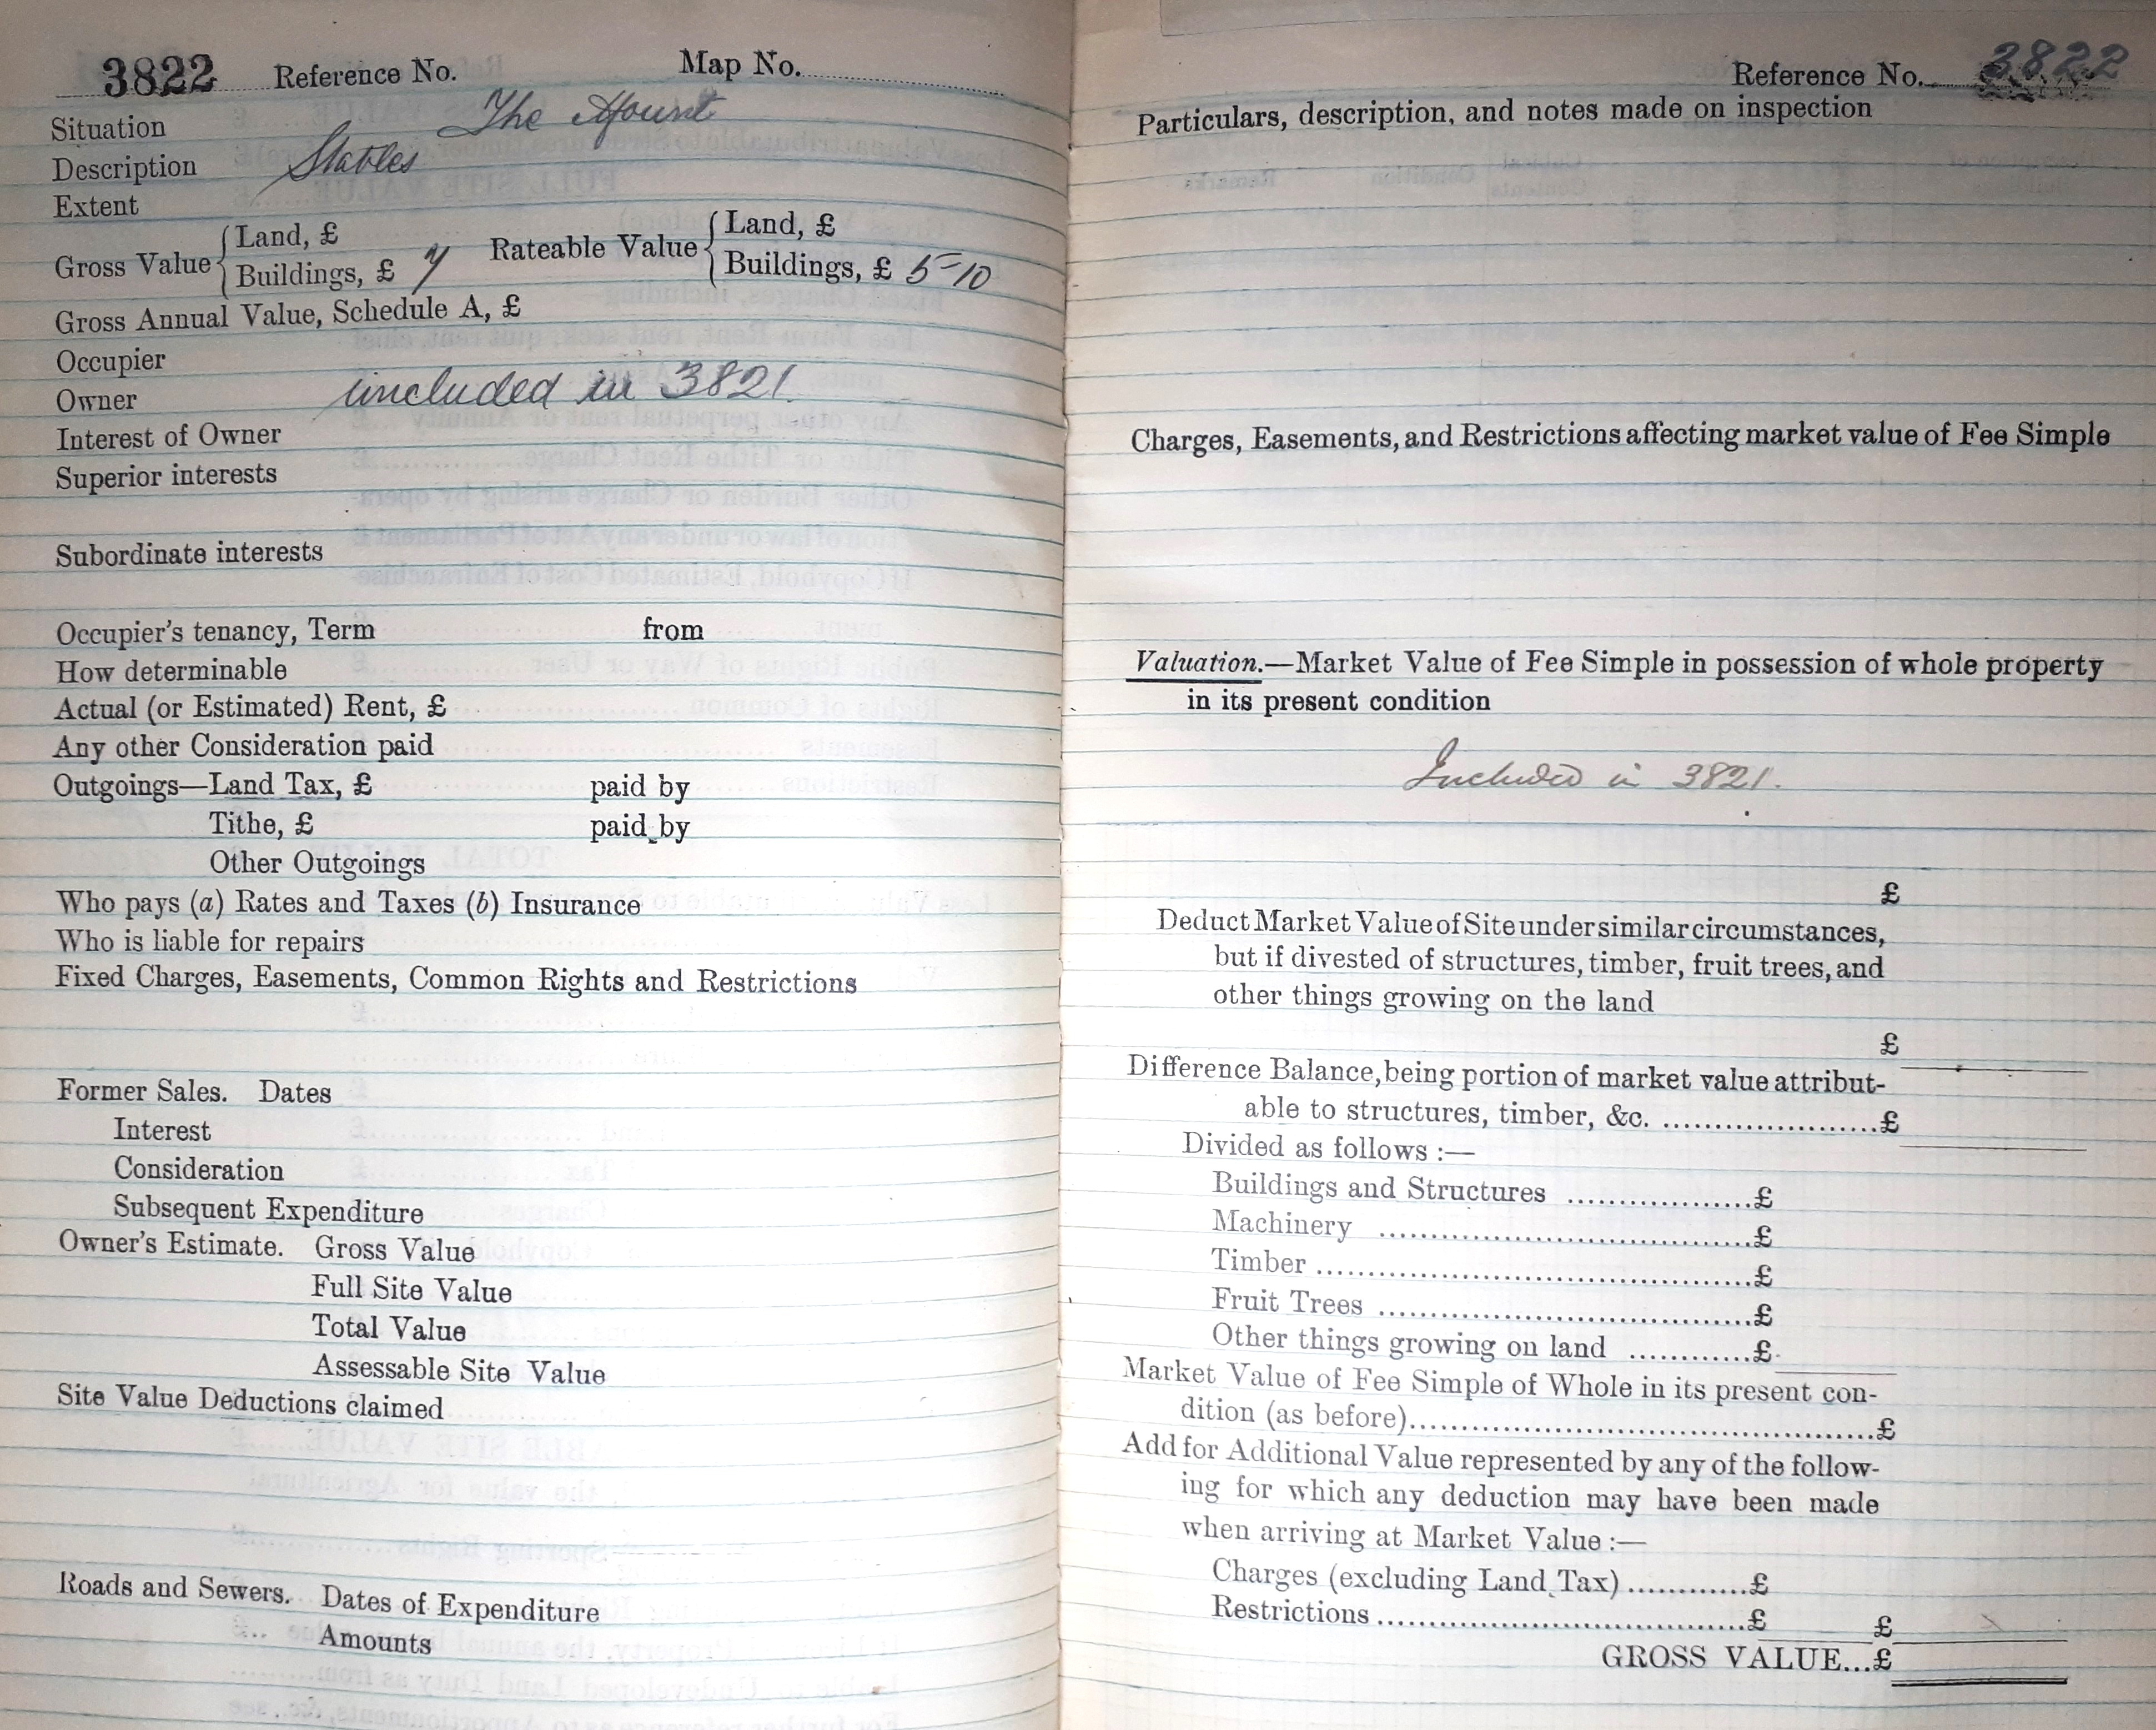 3822 Reference No. Map No.
Situation The Mount
Description Stables
Extent
Gross Value { Land, £
Buildings, £ 7 Rateable Value { Land, £
Buildings, £ 5-10
Gross Annual Value, Schedule A, £
Occupier
Owner included in 3821.
Interest of Owner
Superior interests
Subordinate interests
Occupier's tenancy, Term from
How determinable
Actual (or Estimated) Rent, £
Any other Consideration paid
Outgoings—Land Tax, £ paid by
Tithe, £ paid by
Other Outgoings
Who pays (a) Rates and Taxes (b) Insurance
Who is liable for repairs
Fixed Charges, Easements, Common Rights and Restrictions
Former Sales. Dates
Interest
Consideration
Subsequent Expenditure
Owner's Estimate. Gross Value
Full Site Value
Total Value
Assessable Site Value
Site Value Deductions claimed
Roads and Sewers. Dates of Expenditure
Amounts
Reference No. 3822
Particulars, description, and notes made on inspection
Charges, Easements, and Restrictions affecting market value of Fee Simple
Valuation.—Market Value of Fee Simple in possession of whole property
in its present condition
Included in 3821.
£
Deduct Market Value of Site under similar circumstances,
but if divested of structures, timber, fruit trees, and
other things growing on the land
£
Difference Balance, being portion of market value attribut-
able to structures, timber, &c. ......................£
Divided as follows :—
Buildings and Structures ..................£
Machinery ....................................£
Timber ..........................................£
Fruit Trees ....................................£
Other things growing on land ............£
Market Value of Fee Simple of Whole in its present con-
dition (as before)..............................................£
Add for Additional Value represented by any of the follow-
ing for which any deduction may have been made
when arriving at Market Value :—
Charges (excluding Land Tax)............£
Restrictions.....................................£ £
GROSS VALUE...£